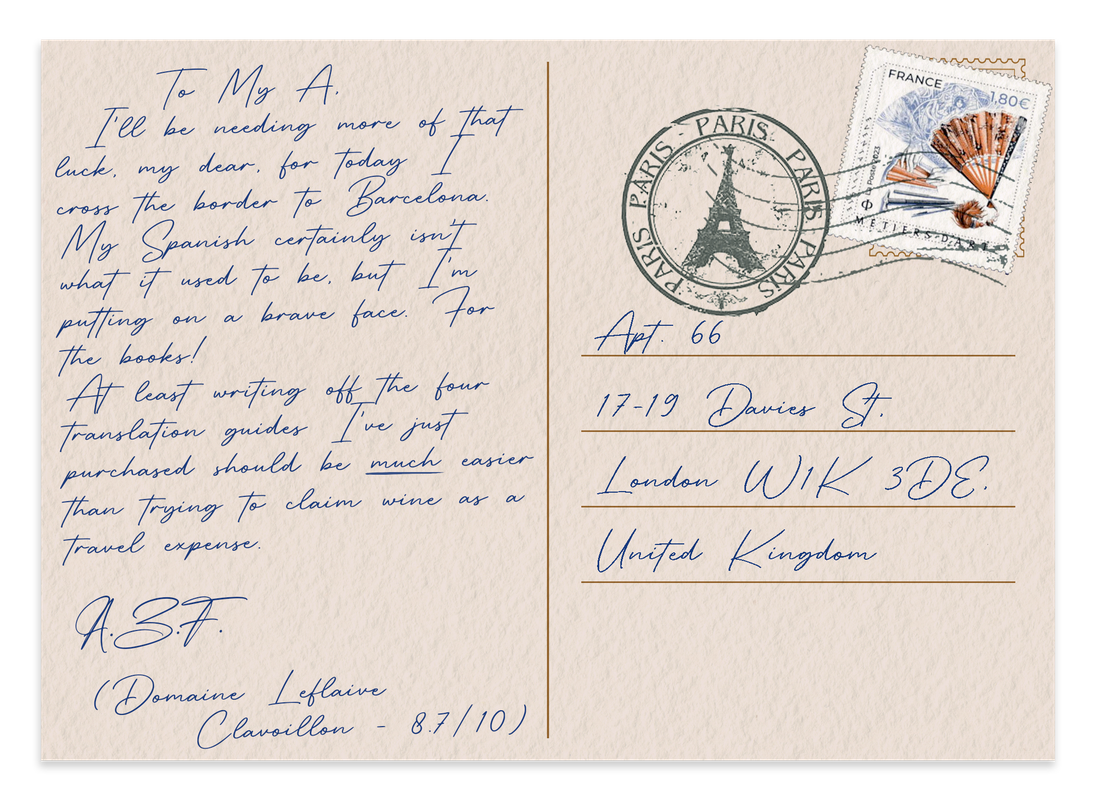 To My A.
I'll be needing more of that
luck, my dear, for today I
cross the border to Barcelona.
My Spanish certainly isn't
what it used to be, but I'm
putting on a brave face. For
the books!
At least writing off the four
translation guides I've just
purchased should be much easier
than trying to claim wine as a
travel expense.
A.Z.F.
(Domaine Leflaive
Clavoillon - 8.7/10)
PARIS PARIS PARIS PARIS PARIS
FRANCE
1,80€
Φ
MÉTIERS D'ART
Apt. 66
17-19 Davies St.
London W1K 3DE.
United Kingdom